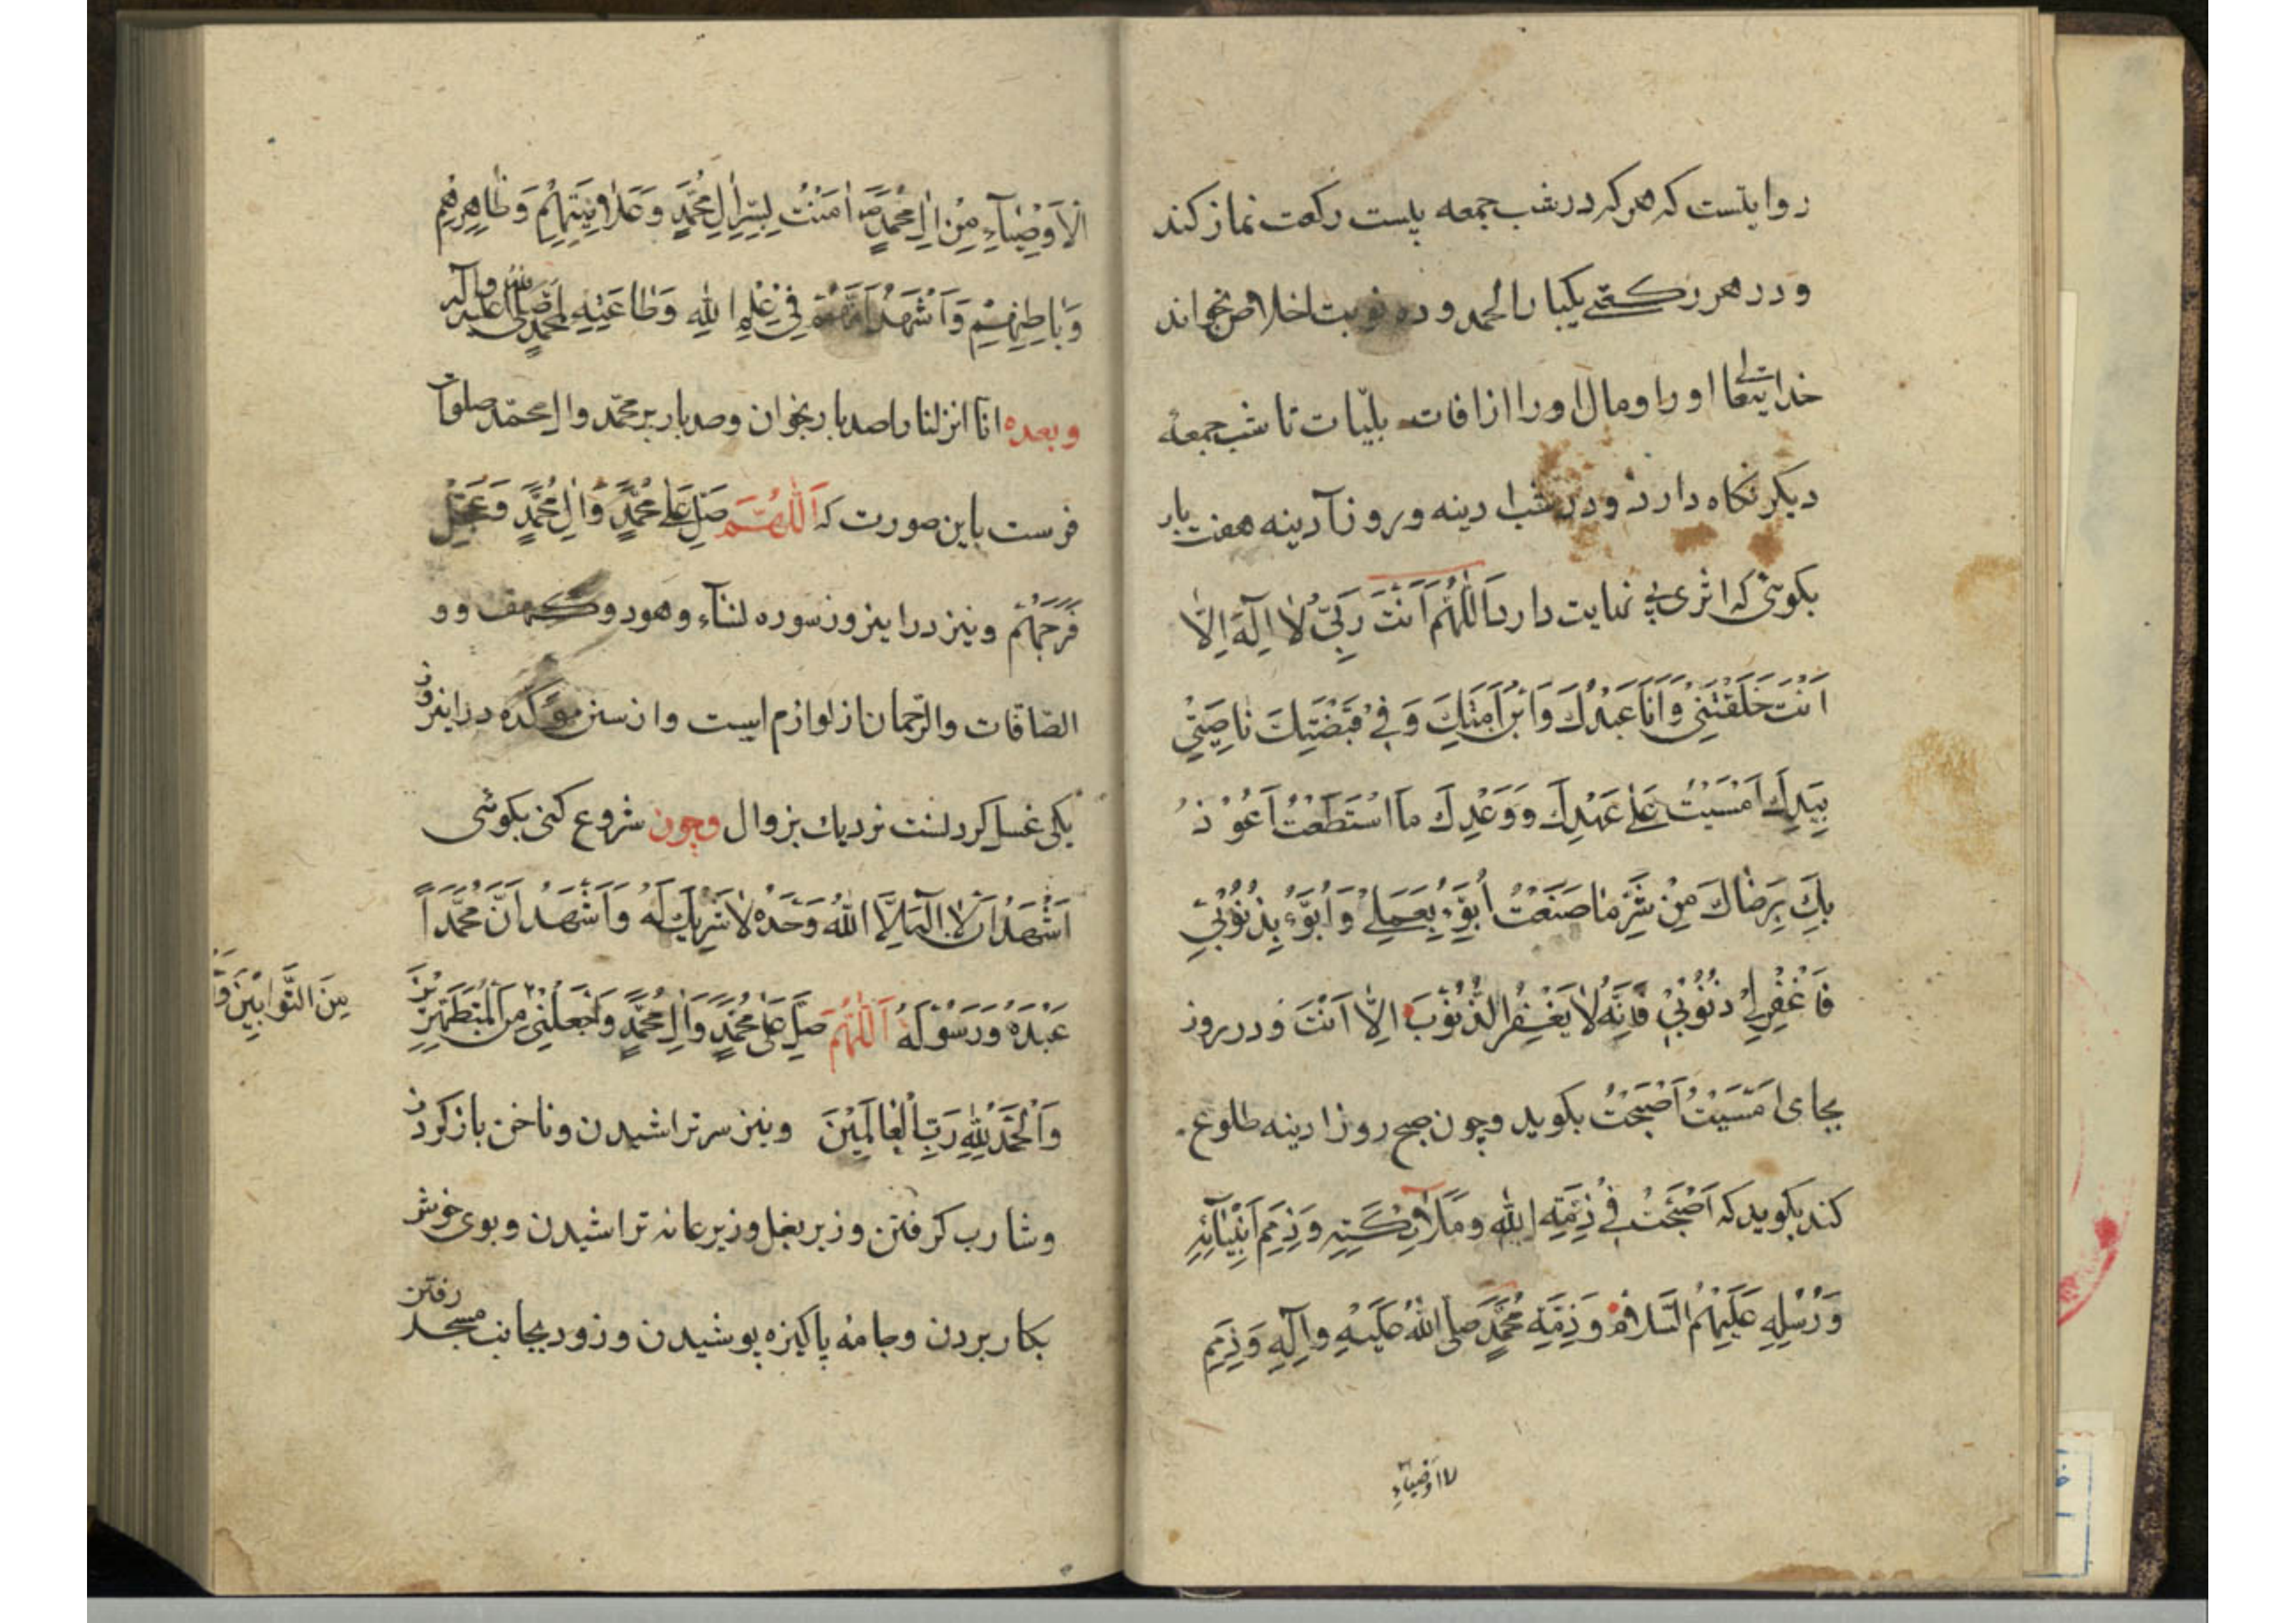 روایتست که هرکه در شب جمعه بیست رکعت نماز کند
و در هر رکعتی یکبار الحمد و ده نوبت اخلاص بخواند
خدایتعالی او را و مال او را از افات بلیّات تا شب جمعهٔ
دیکر نکاه دارد و در شب ادینه و روز آدینه هفت بار
بکوئی که اثری بی نهایت دارد اَللّٰهُمَّ اَنْتَ رَبّی لَا اِلٰهَ اِلَّا
اَنْتَ خَلَقْتَنِی وَاَنَا عَبْدُكَ وَابْنُ اَمَتِكَ وَفِی قَبْضَتِكَ نَاصِیَتِی
بِیَدِكَ اَمْسَیْتُ عَلٰی عَهْدِكَ وَوَعْدِكَ مَا اسْتَطَعْتُ اَعُوْذُ
بِكَ بِرِضَاكَ مِنْ شَرِّ مَا صَنَعْتُ اَبُوْءُ بِعَمَلِی وَاَبُوْءُ بِذُنُوْبِی
فَاغْفِرْ لِی ذُنُوْبِی فَاِنَّهُ لَا یَغْفِرُ الذُّنُوْبَ اِلَّا اَنْتَ و در روز
بجای اَمْسَیْتُ اَصْبَحْتُ بکوید و چون صبح روز ادینه طلوع
کند بکوید که اَصْبَحْتُ فِی ذِمَّةِ اللّٰهِ وَمَلَائِكَتِهِ وَذِمَمِ اَنْبِیَآئِهِ
وَرُسُلِهِ عَلَیْهِمُ السَّلَامُ وَذِمَّةِ مُحَمَّدٍ صَلَّی اللّٰهُ عَلَیْهِ وَاٰلِهِ وَذِمَمِ
الاوصیاءِ
الْاَوْصِیَآءِ مِنْ اٰلِ مُحَمَّدٍ اٰمَنْتُ بِسِرِّ اٰلِ مُحَمَّدٍ وَعَلَانِیَتِهِمْ وَظَاهِرِهِمْ
وَبَاطِنِهِمْ وَاَشْهَدُ اَنَّهُمْ فِی عِلْمِ اللّٰهِ وَطَاعَتِهِ كَمُحَمَّدٍ صَلَّی اللّٰهُ عَلَیْهِ وَاٰلِهِ
وبعده انا انزلنا را صد بار بخوان و صد بار بر محمّد و ال محمّد صلوات
فرست باین صورت که اَللّٰهُمَّ صَلِّ عَلٰی مُحَمَّدٍ وَاٰلِ مُحَمَّدٍ وَعَجِّلْ
فَرَجَهُمْ و نیز در این روز سوره لنسآء و هود و کهف و و
الصّافات و الرّحمان از لوازم ایست و از سنن مؤکده در این روز
یکی غسل کردنست نزدیك بزوال وچون شروع کنی بکوئی
اَشْهَدُ اَنْ لَا اِلٰهَ اِلَّا اللّٰهُ وَحْدَهُ لَا شَرِیْكَ لَهُ وَاَشْهَدُ اَنَّ مُحَمَّداً
عَبْدُهُ وَرَسُوْلُهُ اَللّٰهُمَّ صَلِّ عَلٰی مُحَمَّدٍ وَاٰلِ مُحَمَّدٍ وَاجْعَلْنِی مِنَ الْمُتَطَهِّرِیْنَ
مِنَ التَّوَّابِیْنَ وَ
وَالْحَمْدُ لِلّٰهِ رَبِّ الْعَالَمِیْنَ و نیز سر تراشیدن و ناخن باز کردن
و شارب کرفتن و زیر بغل و زیر عانه تراشیدن و بوی خوش
بکار بردن و جامهٔ پاکیزه پوشیدن و زود بجانب مسجد رفتن